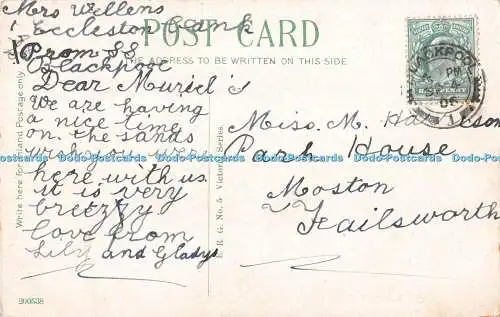 Mrs Wellens
Eccleston
Prom SS
Blackpool
POST CARD
THE ADDRESS TO BE WRITTEN ON THIS SIDE
Dear Muriel's
We are having
a nice time
on. the sands
wish you were
here with us
it is very
breezzy
love from
Lily and Gladys
White here for Inland Postage only
E R G. No. 5 Victoria Series
BLACKPOOL
PM
06
Miss. M.
Park House
Moston
Failsworth
Dodo-Postcards Dodo-Postcards Dodo-Postcards Dodo-Postcards Dodo-Postcards Dodo-Postcards